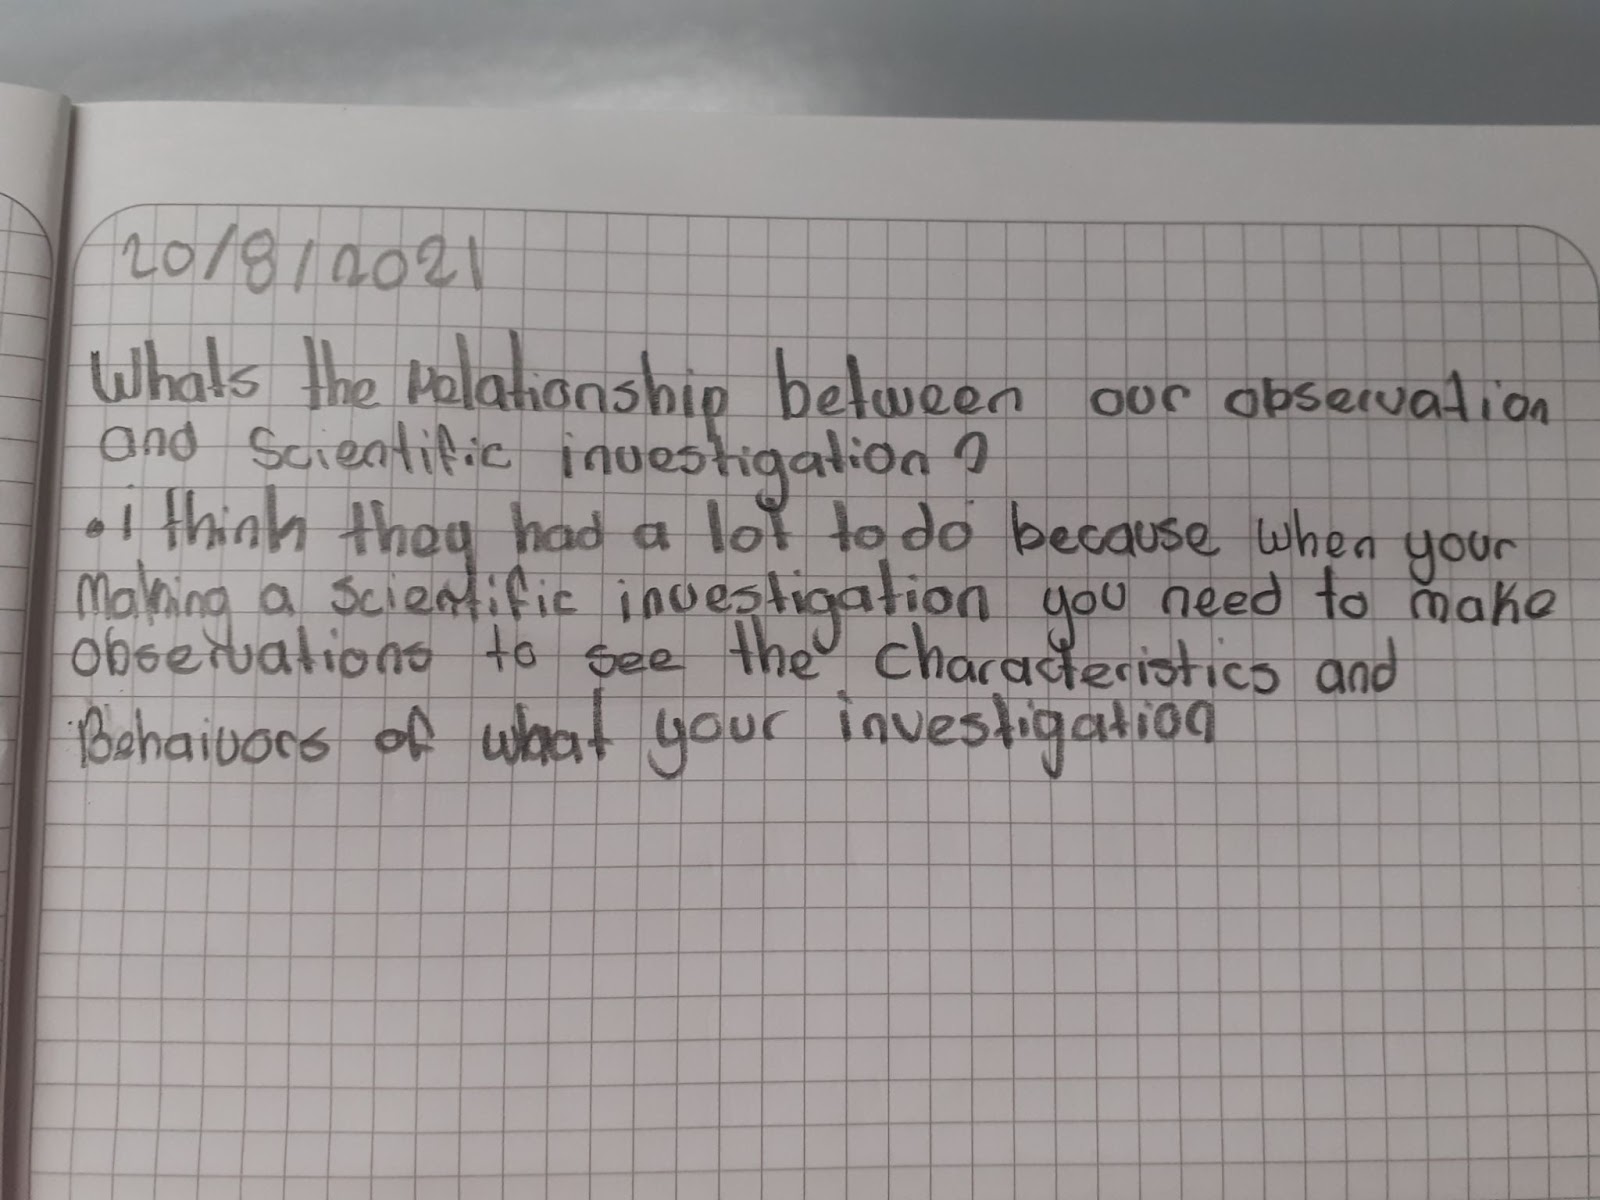 20/8/2021
Whats the relationship between our observation
and scientific investigation?
• i think they had a lot to do because when your
Making a scientific investigation you need to make
observations to see the characteristics and
Behaivors of what your investigation